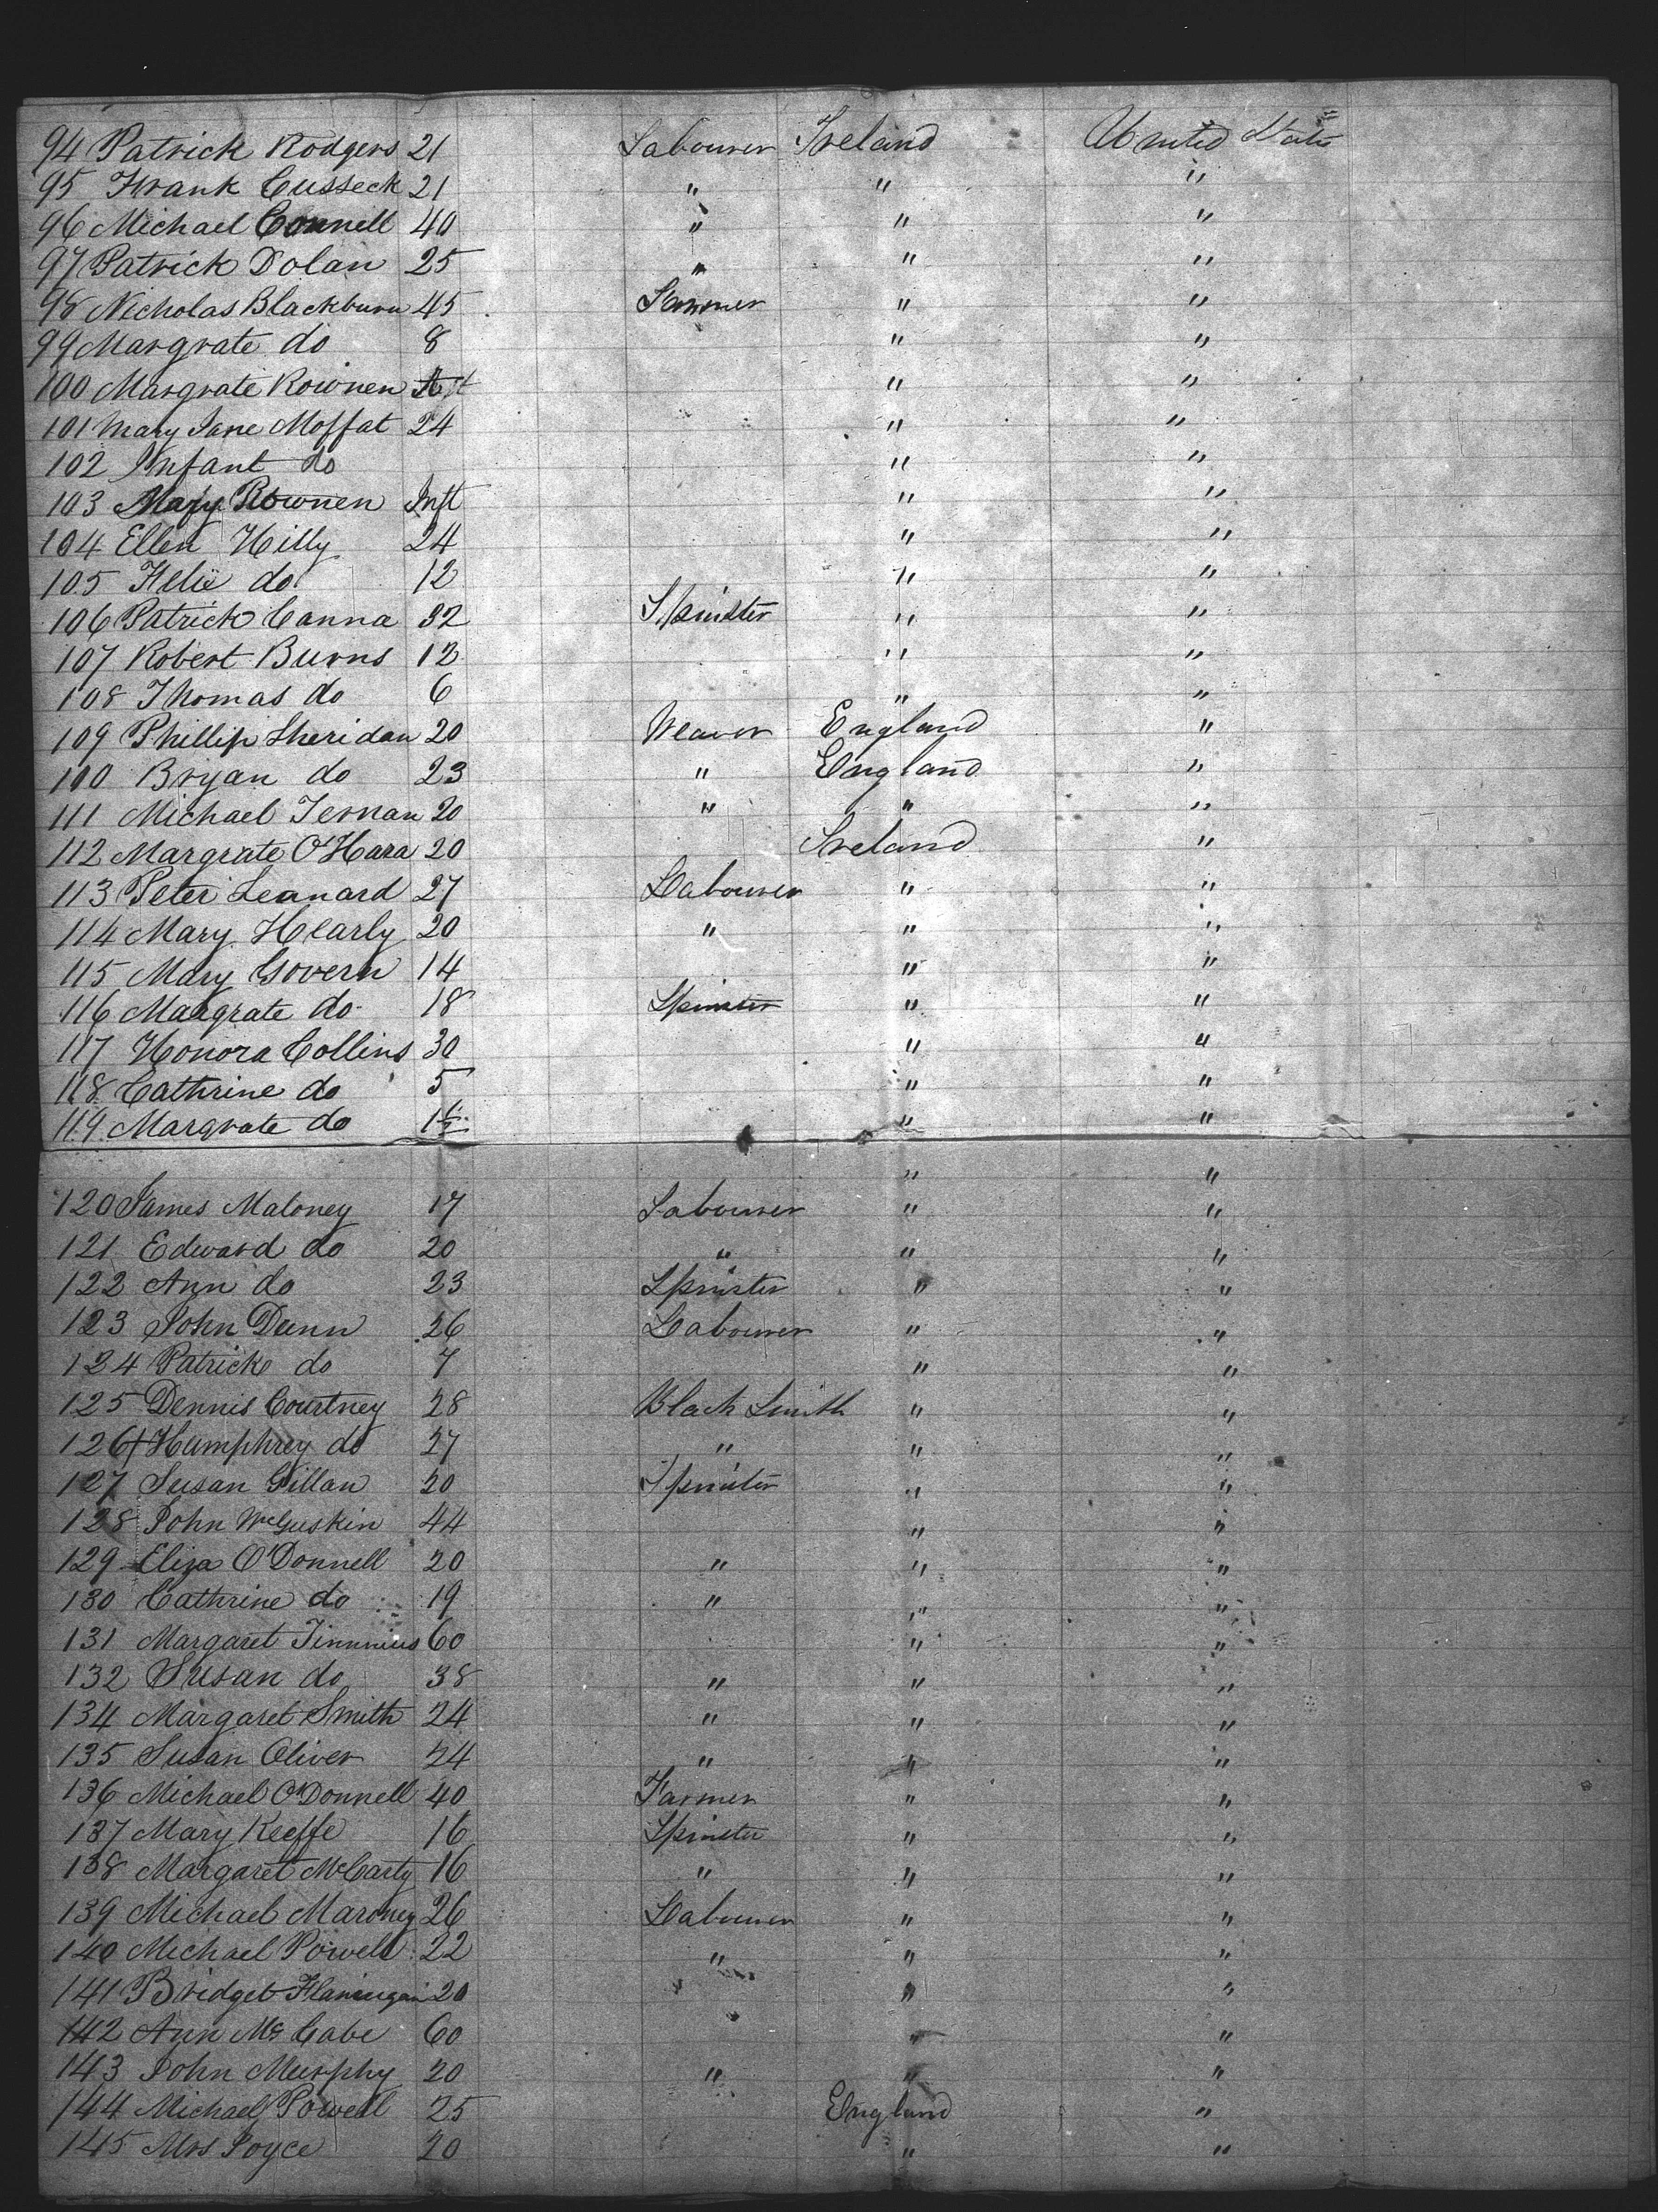 94 Patrick Rodgers 21 Labourer Ireland United States
95 Frank Cusseck 21 " " "
96 Michael Connell 40 " " "
97 Patrick Dolan 25 " " "
98 Nicholas Blackburn 45 Farmer " "
99 Margrate do 8 " "
100 Margrate Rownen " "
101 Mary Jane Moffat 24 " "
102 Infant do " "
103 Mary Rownen Inft " "
104 Ellen Hilly 24 " "
105 do 12 " "
106 Patrick Canna 32 Spinster " "
107 Robert Burns 12 " "
108 Thomas do 6 " "
109 Phillip Sheridan 20 Weaver England "
110 Bryan do 23 " England "
111 Michael Ternan 20 " " "
112 Margrate O'Hara 20 Ireland "
113 Peter Leanard 27 Labourer " "
114 Mary Hearly 20 " " "
115 Mary Govern 14 " "
116 Margrate do 18 Spinster " "
117 Honora Collins 30 " "
118 Cathrine do 5 " "
119 Margrate do " "
" "
120 James Maloney 17 Labourer " "
121 Edward do 20 " " "
122 Ann do 23 Spinster " "
123 John Dunn 26 Labourer " "
124 Patrick do 7 " "
125 Dennis Courtney 28 Black Smith " "
126 Humphrey do 27 " " "
127 Susan Gillan 20 Spinster " "
128 John McGuskin 44 " "
129 Eliza O'Donnell 20 " " "
130 Cathrine do 19 " " "
131 Margaret 60 " "
132 Susan do 38 " " "
134 Margaret Smith 24 " " "
135 Susan Oliver 24 " " "
136 Michael O'Donnell 40 Farmer " "
137 Mary Keeffe 16 Spinster " "
138 Margaret McCarty 16 " " "
139 Michael Maroney 26 Labourer " "
140 Michael Powell 22 " " "
141 Bridget Flannigan 20 " "
142 Ann Mc Cabe 60 " "
143 John Murphy 20 " " "
144 Michael Powell 25 England "
145 Mrs Joyce 20 " "